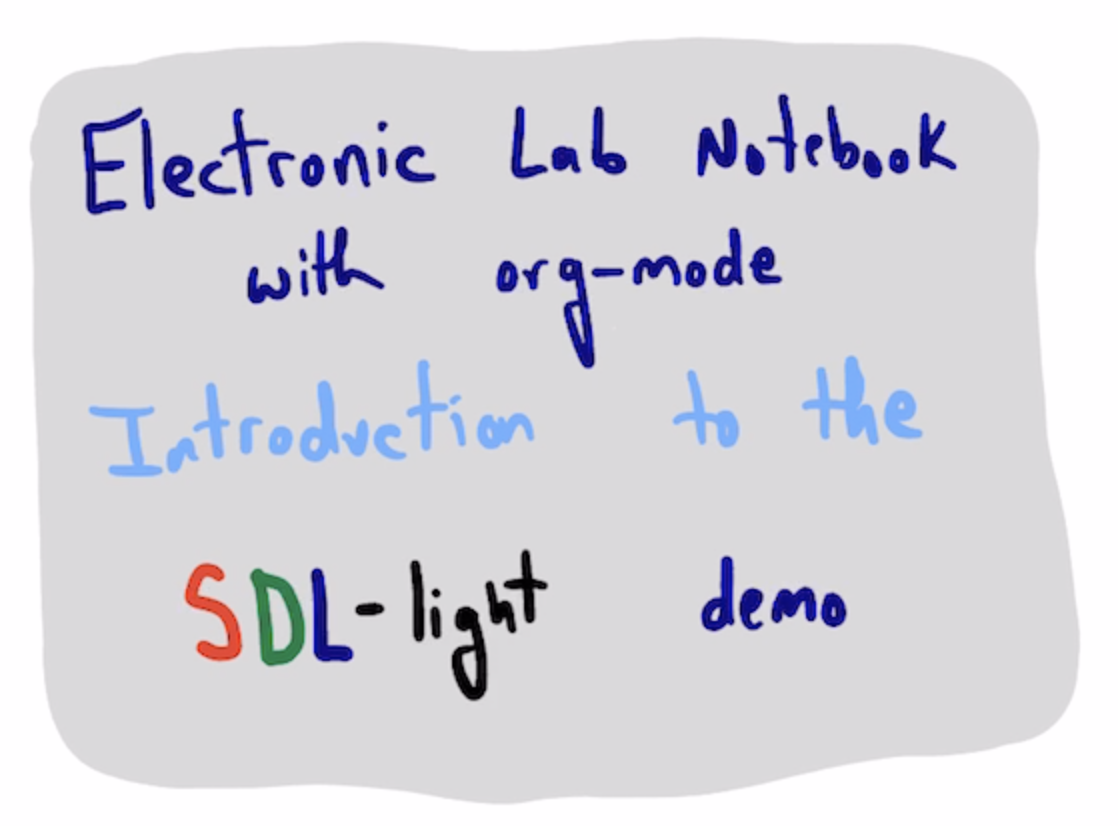 Electronic Lab Notebook
with org-mode
Introduction to the
SDL-light demo